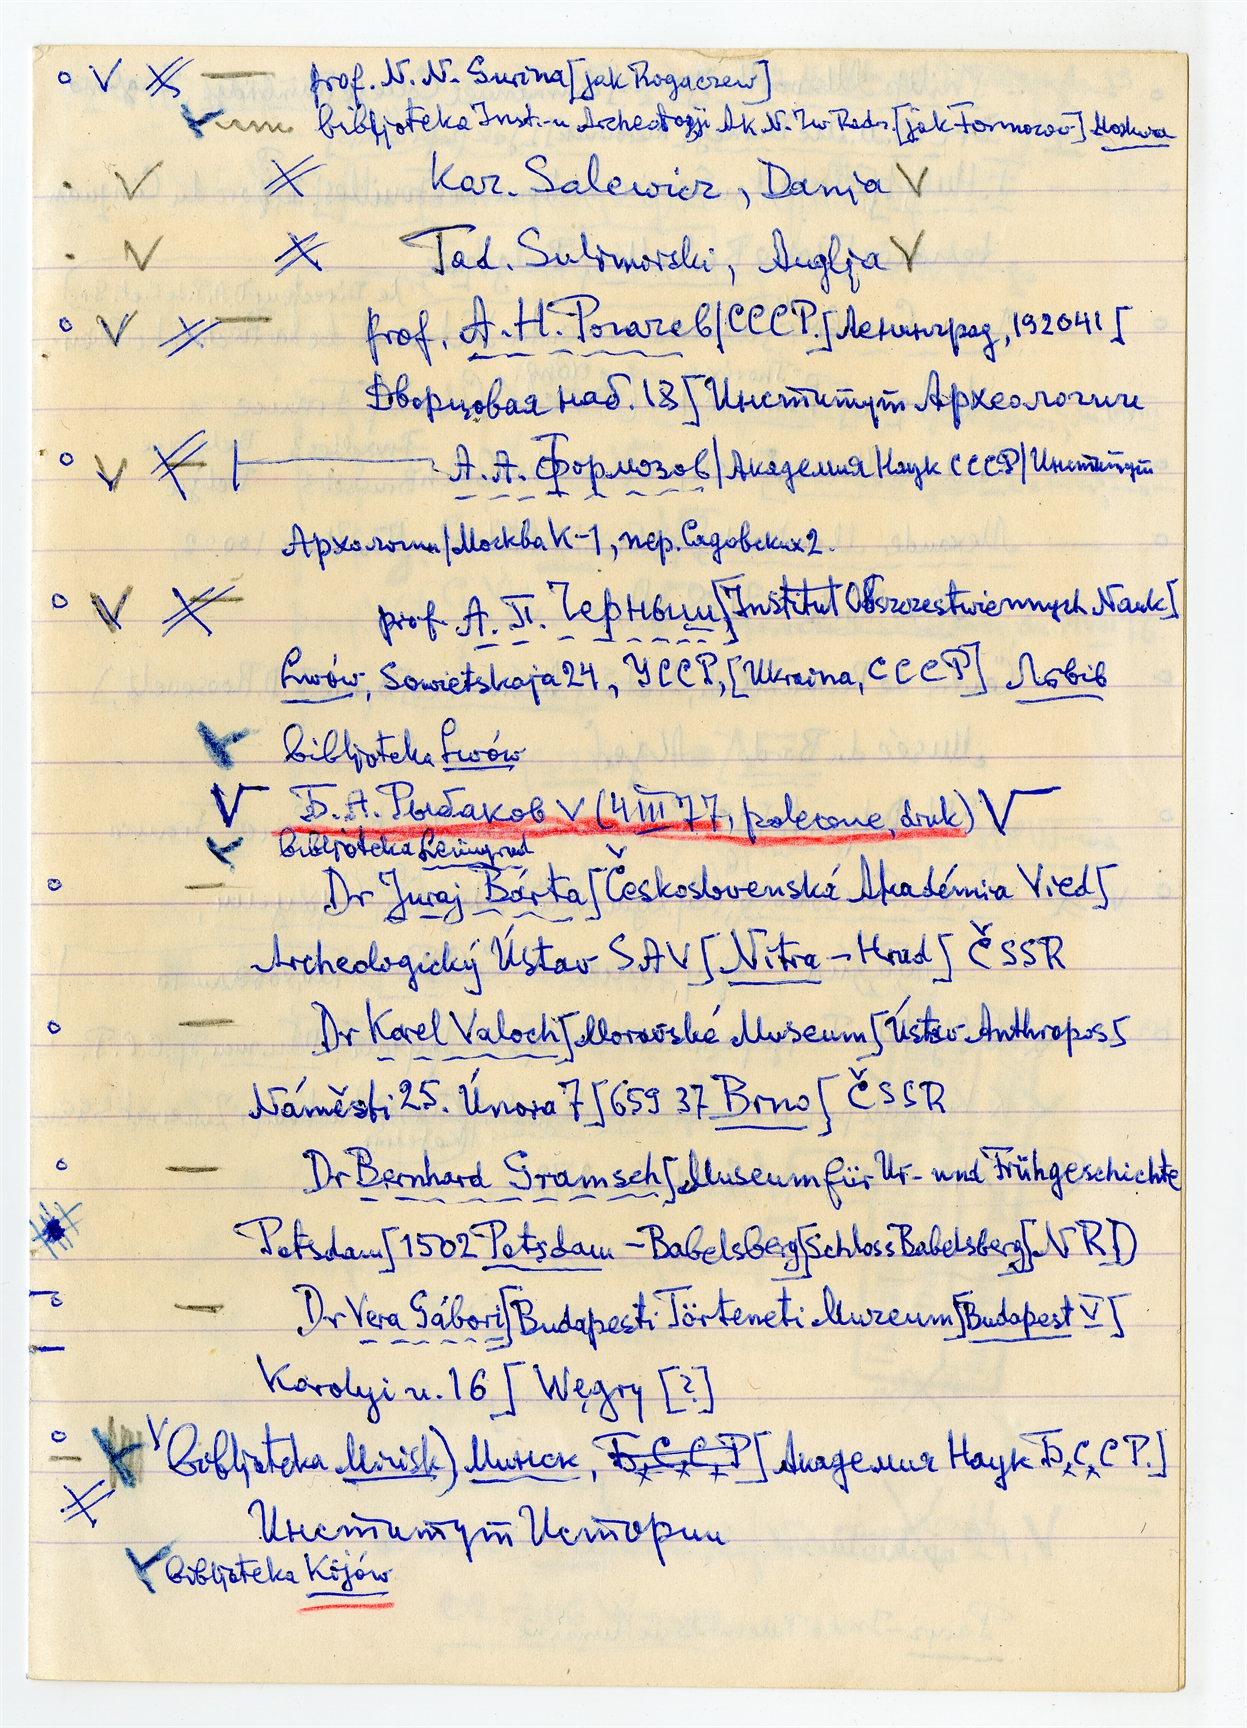 prof. N. N. Gurina [jak Rogaczew]
biblioteka Inst-u Archeologji Ak. N. Zw. Radz. [jak Formozow] Moskwa
Kaz. Salewicz, Danja V
Tad. Sulimirski, Anglja V
prof. А. Н. Рогачев / СССР. [Ленинград, 192041]
Дворцовая наб. 18] Институт Археологии
А. А. Формозов / Академия Наук СССР / Институт
Археологии / Москва К-1, пер. Садовских 2.
prof. А. П. Черныш [Institut Obszczestwiennych Nauk]
Lwów, Sowietskaja 24, УССР, [Ukraina, СССР] Львів
biblioteka Lwów
V Б. А. Рыбаков V (4 III 77, polecone, druk) V
biblioteka Leningrad
Dr Juraj Bárta [Československá Akadémia Vied]
Archeologický Ústav SAV] Nitra - Hrad] ČSSR
Dr Karel Valoch] Moravské Museum] Ústav Anthropos]
Náměsti 25. Února 7] 659 37 Brno] ČSSR
Dr Bernhard Gramsch] Museum für Ur- und Frühgeschichte
Potsdam] 1502 Potsdam - Babelsberg] Schloss Babelsberg] NRD
Dr Vera Gábori] Budapesti Törteneti Muzeum] Budapest V]
Karolyi u. 16] Węgry [?]
V biblioteka Mińsk) Минск, Б.С.С.Р [Академия Наук Б.С.С.Р.]
Институт Истории
biblioteka Kijów